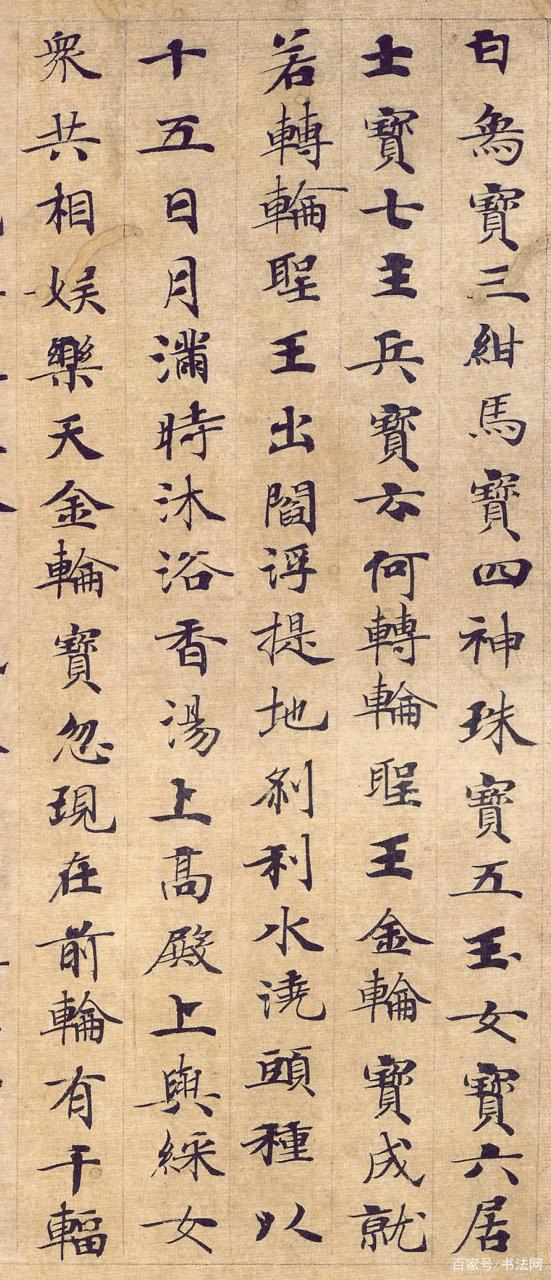 白象寶三紺馬寶四神珠寶五玉女寶六居
士寶七主兵寶云何轉輪聖王金輪寶成就
若轉輪聖王出閻浮提地剎利水澆頭種以
十五日月滿時沐浴香湯上高殿上與綵女
眾共相娛樂天金輪寶忽現在前輪有千輻
百家号/书法网